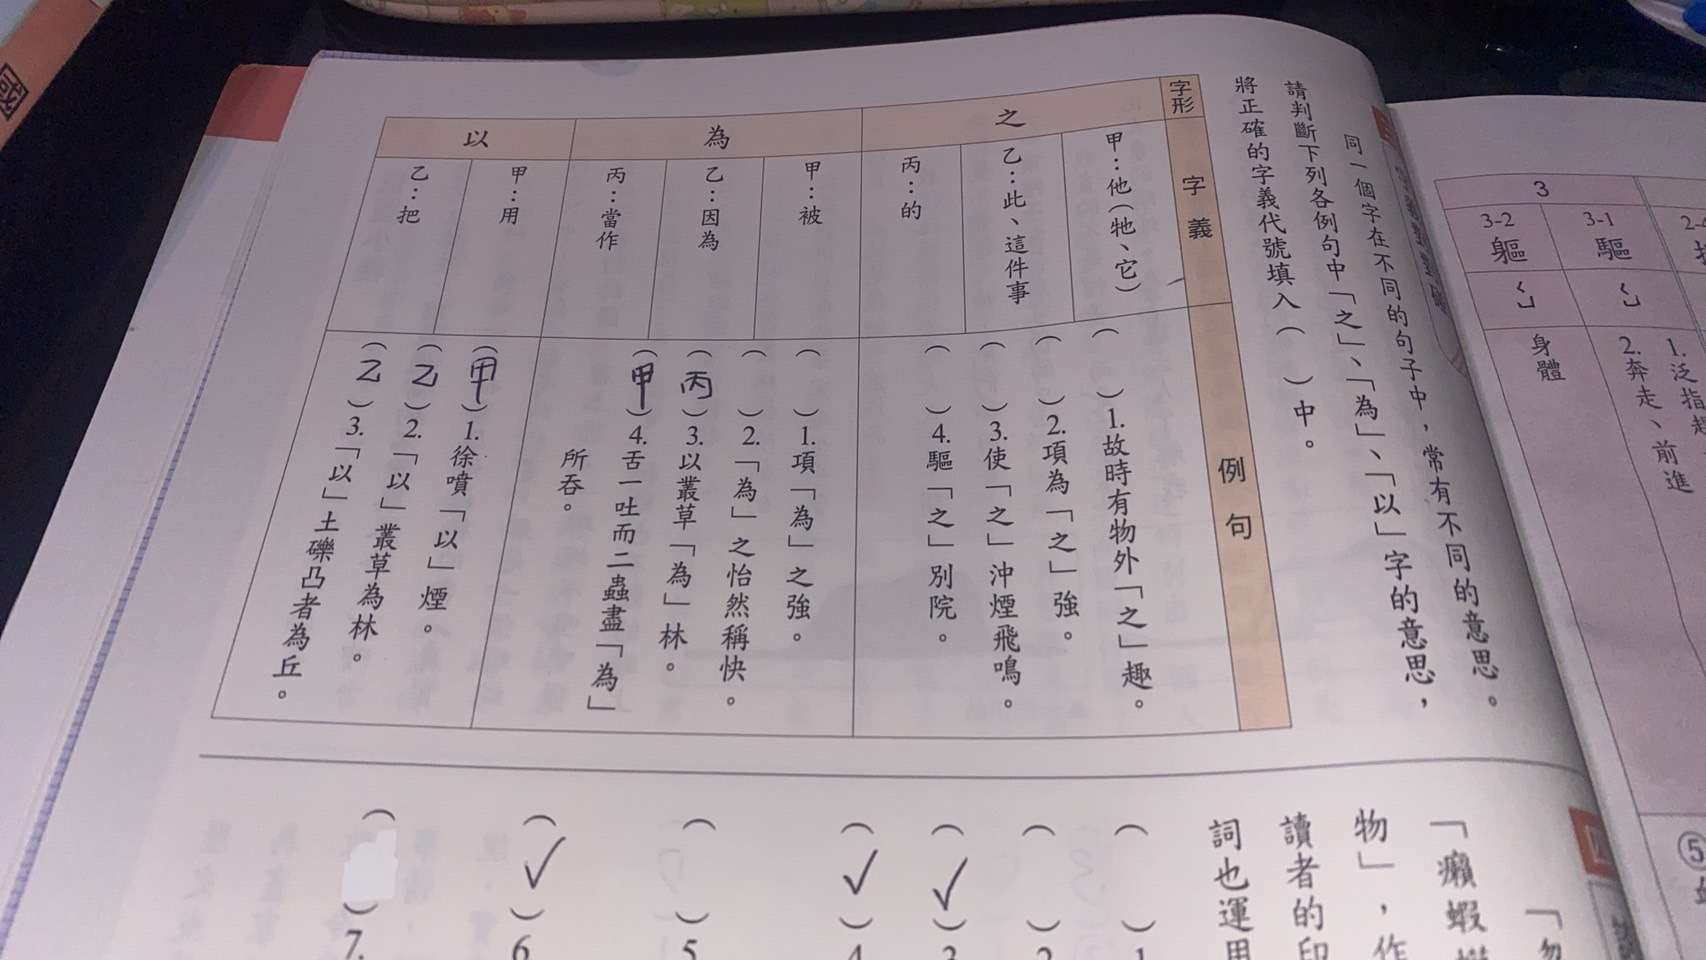 國
3
3-1
驅
ㄑㄩ
1.泛指
2.奔走、前進
3-2
軀
ㄑㄩ
身體
同一個字在不同的句子中，常有不同的意思。
請判斷下列各例句中「之」、「為」、「以」字的意思，
將正確的字義代號填入（　）中。
字形
字義
例句
之
甲：他（牠、它）
乙：此、這件事
丙：的
（　）1.故時有物外「之」趣。
（　）2.項為「之」強。
（　）3.使「之」沖煙飛鳴。
（　）4.驅「之」別院。
為
甲：被
乙：因為
丙：當作
（　）1.項「為」之強。
（　）2.「為」之怡然稱快。
（丙）3.以叢草「為」林。
（甲）4.舌一吐而二蟲盡「為」
所吞。
以
甲：用
乙：把
（甲）1.徐噴「以」煙。
（乙）2.「以」叢草為林。
（乙）3.「以」土礫凸者為丘。
「癩蝦
物」，作
讀者的印
詞也運用
（　）1
（　）2
（✓）3
（✓）4
（　）5
（✓）6
（　）7.
⑤